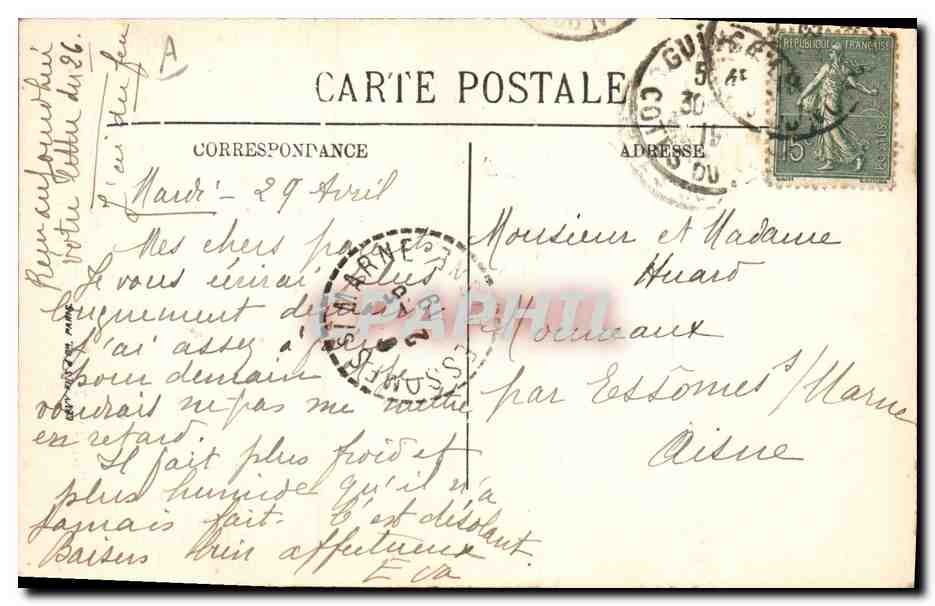 A
CARTE POSTALE
CORRESPONDANCE
ADRESSE
REPUBLIQUE FRANÇAISE
15c
GUINGAMP
5
30
COTES DU
Reçu aujourd'hui
votre lettre du 26.
J'ai du feu
Mardi - 29 Avril
Mes chers parents
Je vous écrirai plus
longuement demain
J'ai assez à faire
pour demain
voudrais ne pas me mettre
en retard.
Il fait plus froid et
plus humide qu'il n'a
jamais fait. C'est désolant
Baisers bien affectueux
Eva
Monsieur et Madame
Huard
Monneaux
par Essômes s/ Marne
Aisne
ESSOMES S/ MARNE
AISNE
2
PARIS
CPAPHIL